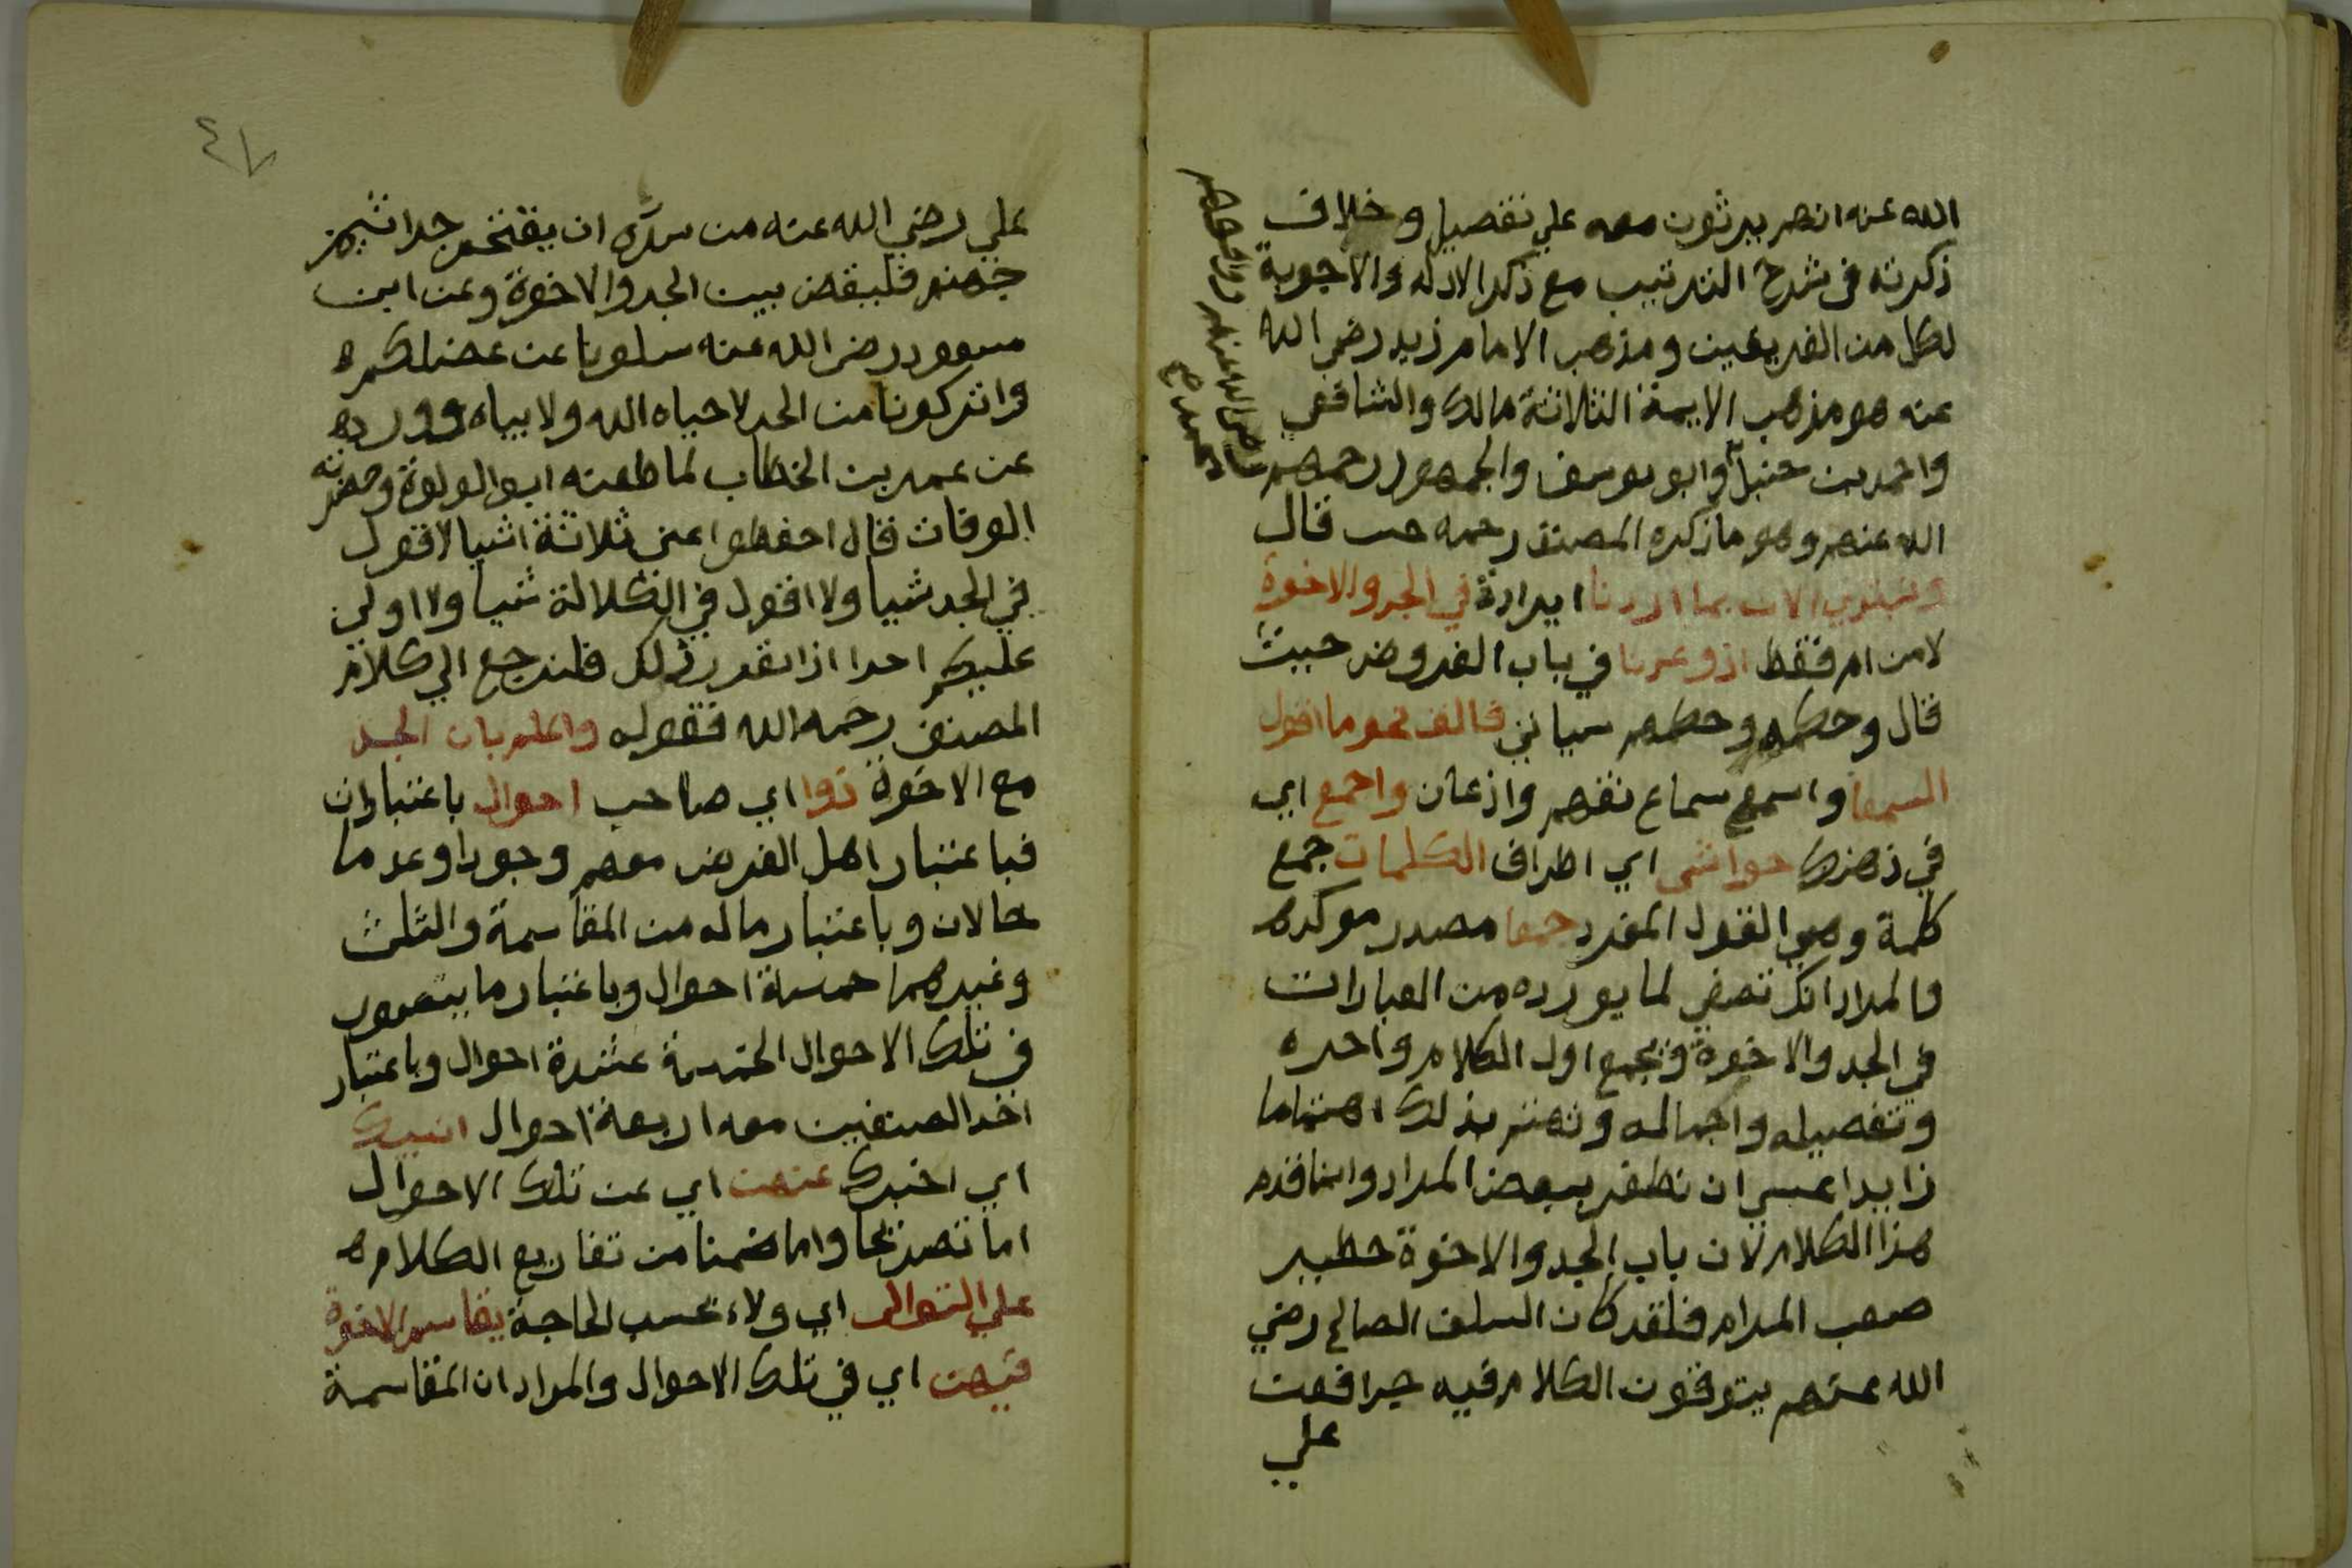 الله عنه انهم يرثون معه علي تفصيل وخلاف
ذكرته في شرح الترتيب مع ذكر الادلة والاجوبة
لكل من الفريقين ومذهب الامام زيد رضي الله
عنه هو مذهب الايمة الثلاثة مالك والشافعي
واحمد بن حنبل وابو يوسف والجمهور رحمهم
الله عنهم وهو ما ذكره المصنف رحمه حيث قال
ونبتدي الان بما اردنا ايرادة في الجد والاخوة
لا من ام فقط اذ وعدنا في باب الفروض حيث
قال وحكمه وحكمهم سياتي فالف نحو ما اقول
السمعا واسمع سماع تفهم واذعان واجمع اي
في ذهنك حواشي اي اطراف الكلمات جمع
كلمة وهي القول المفرد جمعا مصدر موكده
والمراد انك تصغي لما يورده من العبارات
في الجد والاخوة وتجمع اول الكلام واخره
وتفصيله واجماله وتهتم بذلك اهتماما
زايدا عسي ان تظفر ببعض المراد وانما قدم
هذا الكلام لان باب الجد والاخوة خطير
صعب المرام فلقد كان السلف الصالح رضي
الله عنهم يتوقون الكلام فيه جدا فعن
علي
علي رضي الله عنه من سره ان يقتحم جراثيم
جهنم فليقض بين الجد والاخوة وعن ابن
مسعود رضي الله عنه سلونا عن عضلكم
واتركونا من الجد لا حياه الله ولا بياه وورد
عن عمر بن الخطاب لما طعنه ابو لولوة وحضرته
الوفات قال احفظوا عني ثلاثة اشيا لا اقول
في الجد شيا ولا اقول في الكلالة شيا ولا اولي
عليكم احدا اذا تقرر ذلك فلنرجع الي كلام
المصنف رحمه الله فقوله واعلم بان الجد
مع الاخوة ذوا اي صاحب احوال باعتبارات
فباعتبار اهل الفرض معهم وجودا وعدما
حالان وباعتبار ماله من المقاسمة والثلث
وغيرهما خمسة احوال وباعتبار ما يتصور
في تلك الاحوال الخمسة عشرة احوال وباعتبار
اخذ الصنفين معه اربعة احوال انبيك
اي اخبرك عنهن اي عن تلك الاحوال
اما تصريحا واما ضمنا من تفاريع الكلام
علي التوالي اي ولاء بحسب الحاجة يقاسم الاخوة
فيهن اي في تلك الاحوال والمراد ان المقاسمة